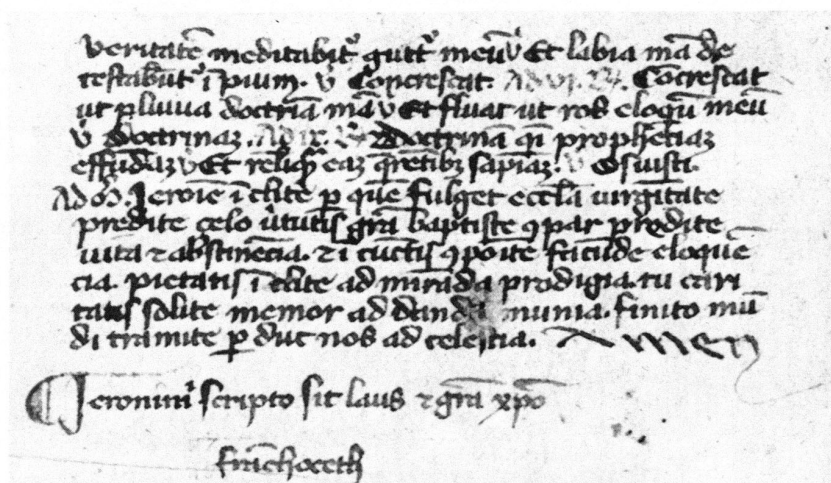 veritatē meditabit᷑ gutt᷑ meū ℣ Et labia mā de
testabūt᷑ īpium. ℣ Concrescat. Ad vi. ℟. Cōcrescat
ut pluvia doctriā mā ℣ Et fluat ut ros eloqⁱū meū
℣ doctrinaꝫ. Ad ix. ℟ doctrinā qⁱ prophetiaꝫ
effūdaꝫ ℣ Et relīqꝫ eaꝫ q̄rētibꝫ sapīaꝫ. ℣ Os iusti.
Ad Jeroīe īclite per quē fulget eccl̄ia uirgītate
predite celo v̓tutis gr̄a baptiste ꝯpar prodite
vita ⁊ abstinēcia. ⁊ ī cūctis ꝯpoīte fecūde eloquē
cia. pietatis īclite ad mirāda prodigia. tu cari
tatis solite memor ad dandā munia. finito mū
di tramite perduc nos ad celestia. Amen
¶ Jeronimi scripto sit laus ⁊ gr̄a xp̄o